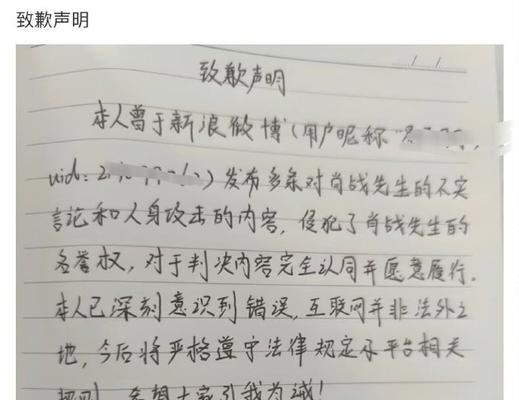 致歉声明
致歉声明
本人曾于新浪微博(用户昵称"
uid: 2)发布多条对肖战先生的不实
言论和人身攻击的内容,侵犯了肖战先生的
名誉权,对于判决内容完全认同并愿意履行.
本人已深刻意识到错误,互联网并非法外之
地,今后将严格遵守法律规定及平台相关
规则,希望大家引我为诫!